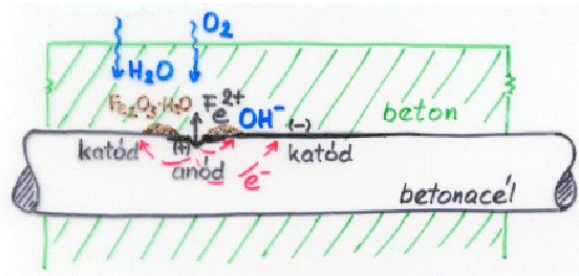 O₂
H₂O
Fe₂O₃·H₂O Fe²⁺ OH⁻ (-) beton
katód (+) anód katód
e⁻
betonacél